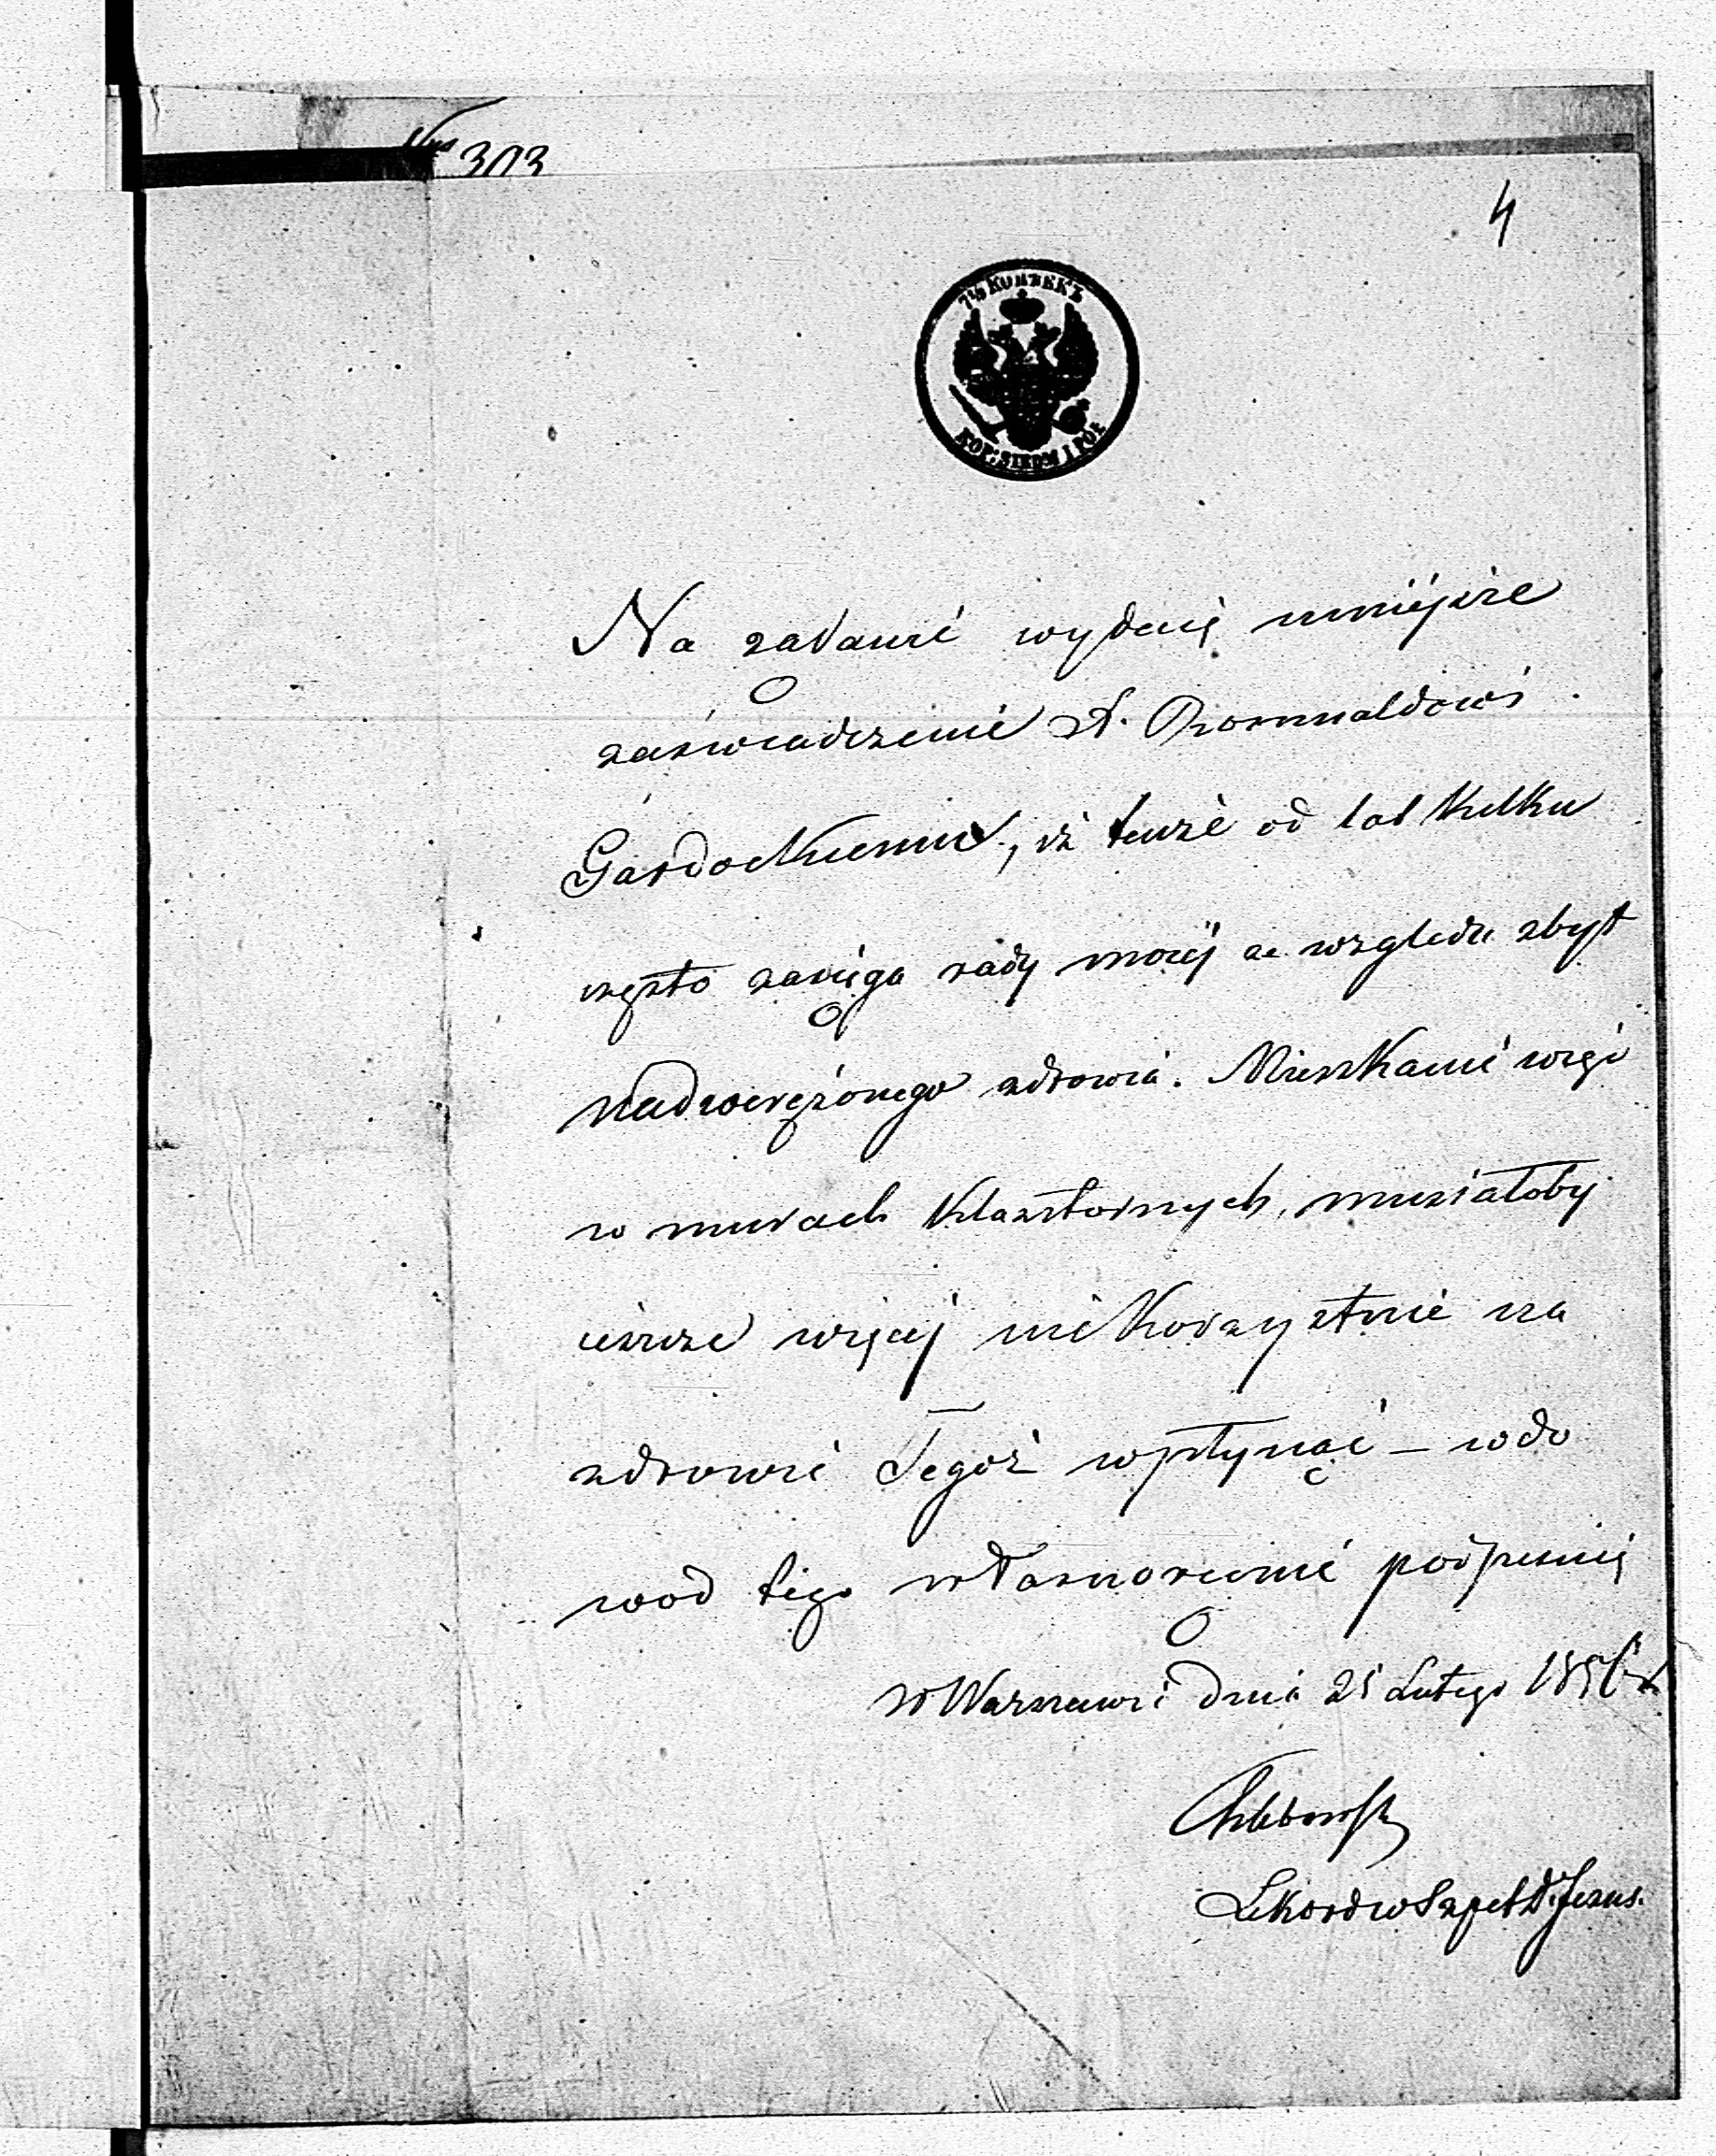 303
4
7½ КОПѢЕКЪ
KOP: SIEDM I PÓŁ
Na żądanie wydaię ninieysze
zaświadczenie X. Romualdowi
Gardockiemu, iż tenże od lat kilku
często zasięga rady moiéj ze względu zbyt
nadwerężonego zdrowia. Mieszkanie więc
w murach klasztornych, musiałoby
ieszcze więcej niekorzystnie na
zdrowie Tegoż wpłynąć – w do
wod tego własnoręcznie podpisuię
w Warszawie dnia 25 Lutego 1856 r.
Lek ord w Szpit D. Jezus.